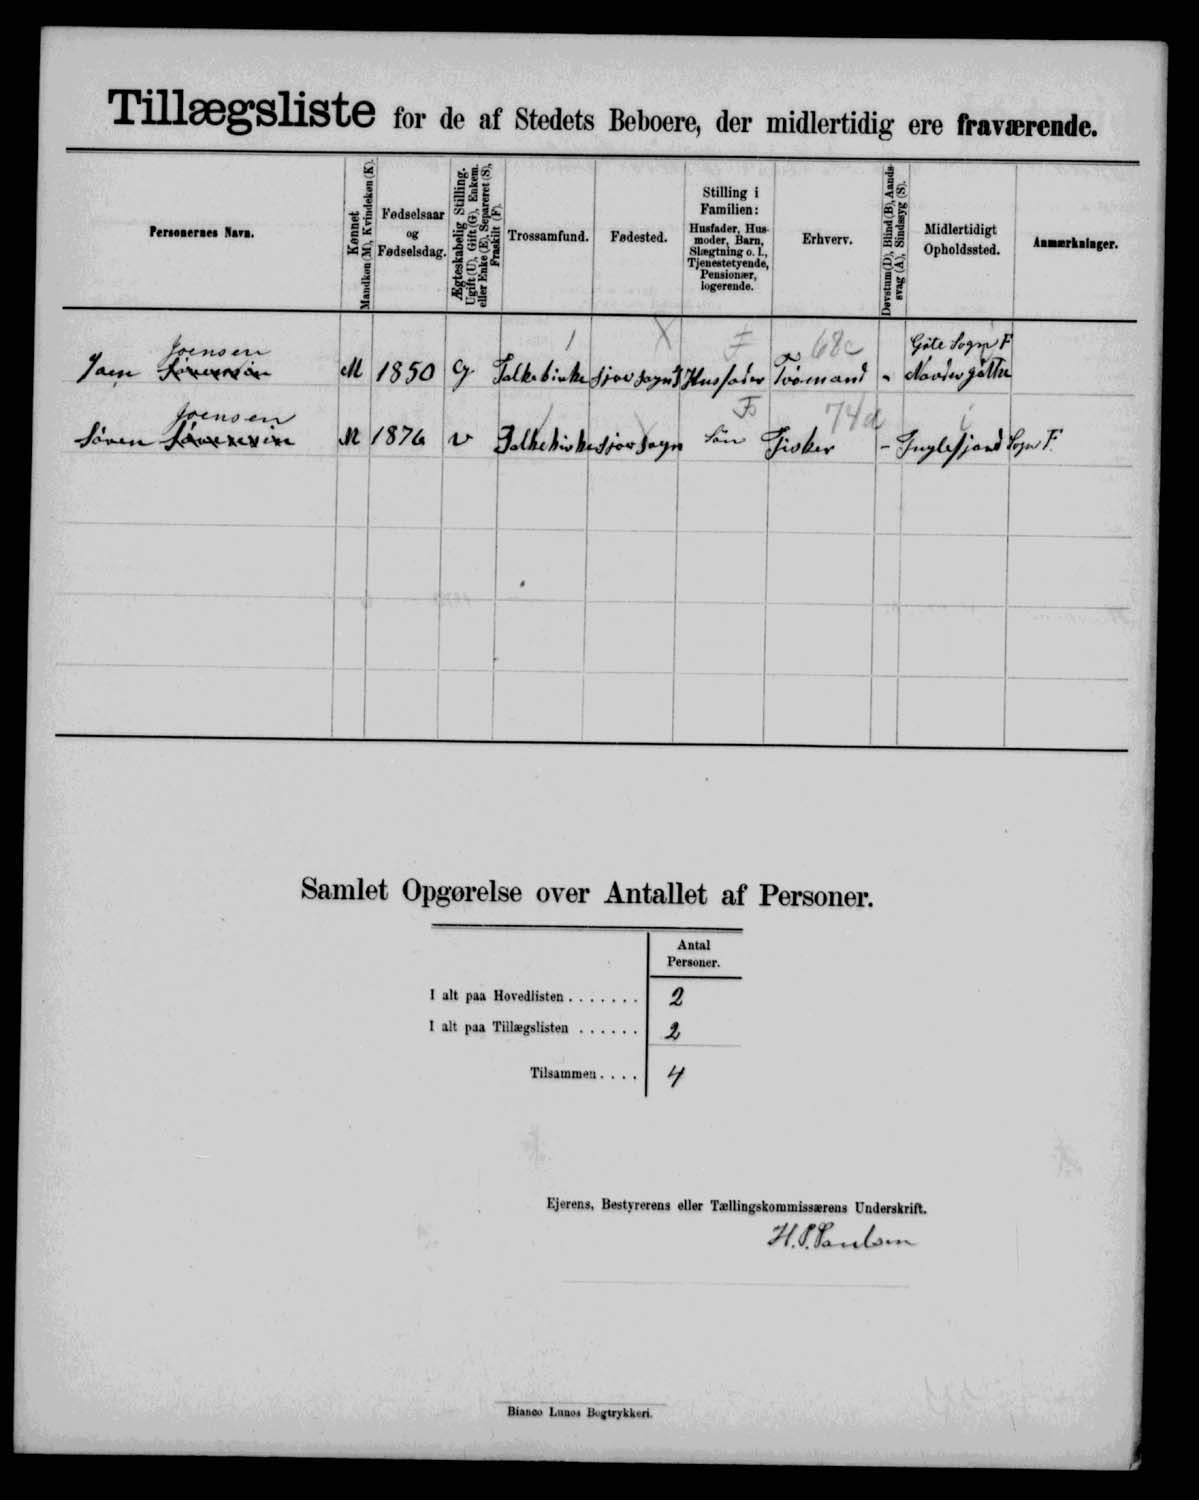 Tillægsliste for de af Stedets Beboere, der midlertidig ere fraværende.
Personernes Navn.
Kønnet
Mandkøn (M), Kvindekøn (K).
Fødselsaar
og
Fødselsdag.
Ægteskabelig Stilling.
Ugift (U), Gift (G), Enkem.
eller Enke (E), Separeret (S),
Fraskilt (F).
Trossamfund.
Fødested.
Stilling i
Familien:
Husfader, Hus-
moder, Barn,
Slægtning o. l.,
Tjenestetyende,
Pensionær,
logerende.
Erhverv.
Døvstum (D), Blind (B), Aands-
svag (A), Sindssyg (S).
Midlertidigt
Opholdssted.
Anmærkninger.
Joensen 68c Göte Sogn F
M 1850 G. Folkekirke Sjov sogn Husfader - Nordergötte
Joensen 74a
Sören M 1876 Folkekirke Sjov sogn Sön Fisker - Fuglefjord Sogn F.
Samlet Opgørelse over Antallet af Personer.
Antal
Personer.
I alt paa Hovedlisten . . . . . . . 2
I alt paa Tillægslisten . . . . . . 2
Tilsammen . . . . 4
Ejerens, Bestyrerens eller Tællingskommissærens Underskrift.
H. P. Poulsen
Bianco Lunos Bogtrykkeri.